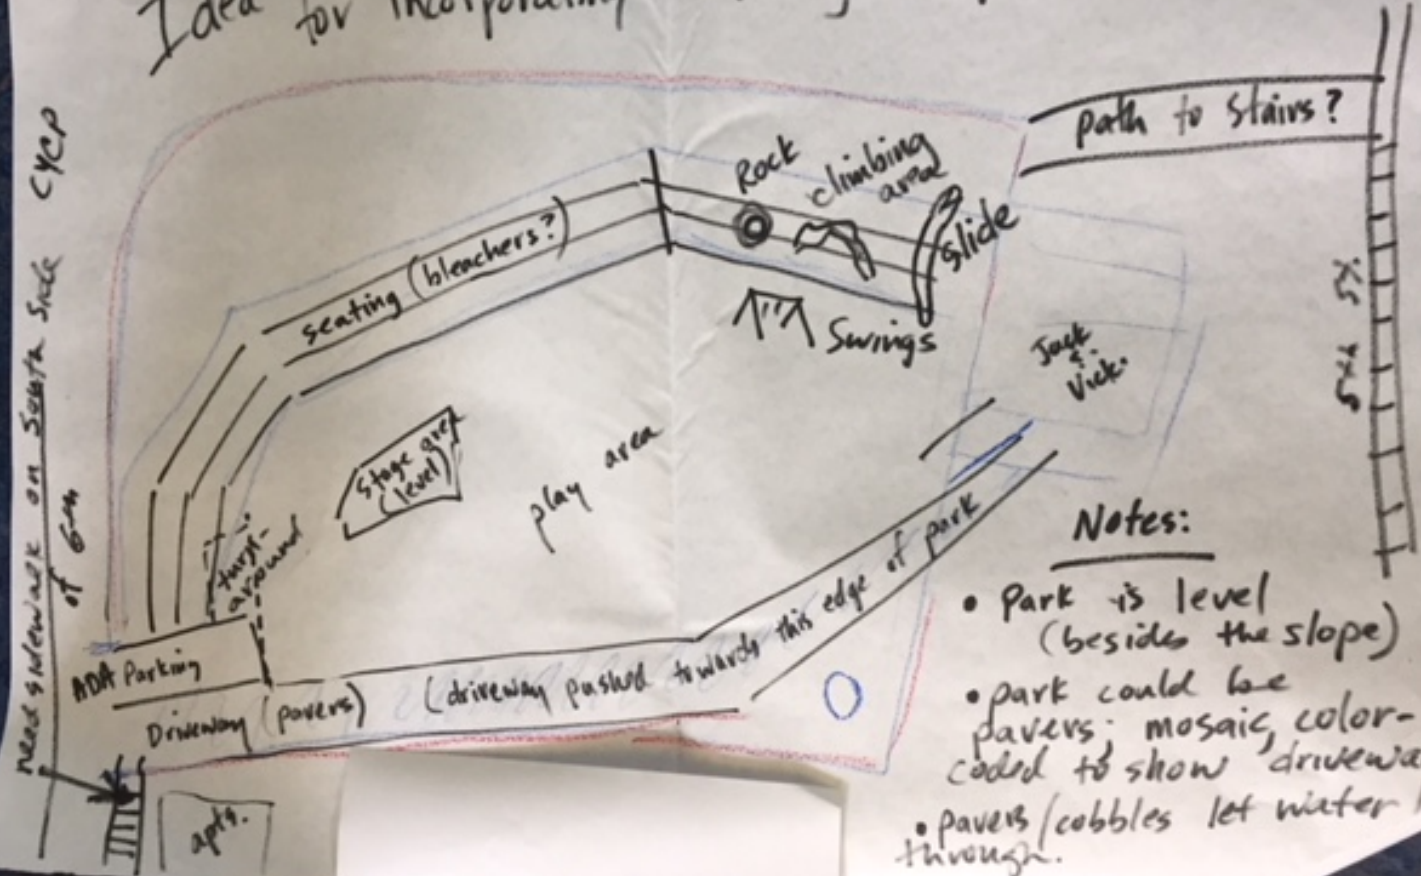 Idea
for incorporating
path to stairs?
Rock
climbing
area
slide
Swings
seating (bleachers?)
Jack
&
Vick.
stage area
(level)
play area
turn-
around
ADA Parking
Driveway (pavers)
(driveway pushed towards this edge of park
apts.
need sidewalk on South Side
of 6th
Notes:
• Park is level
(besides the slope)
• park could be
pavers; mosaic, color-
coded to show drivewa
• pavers/cobbles let water
through.